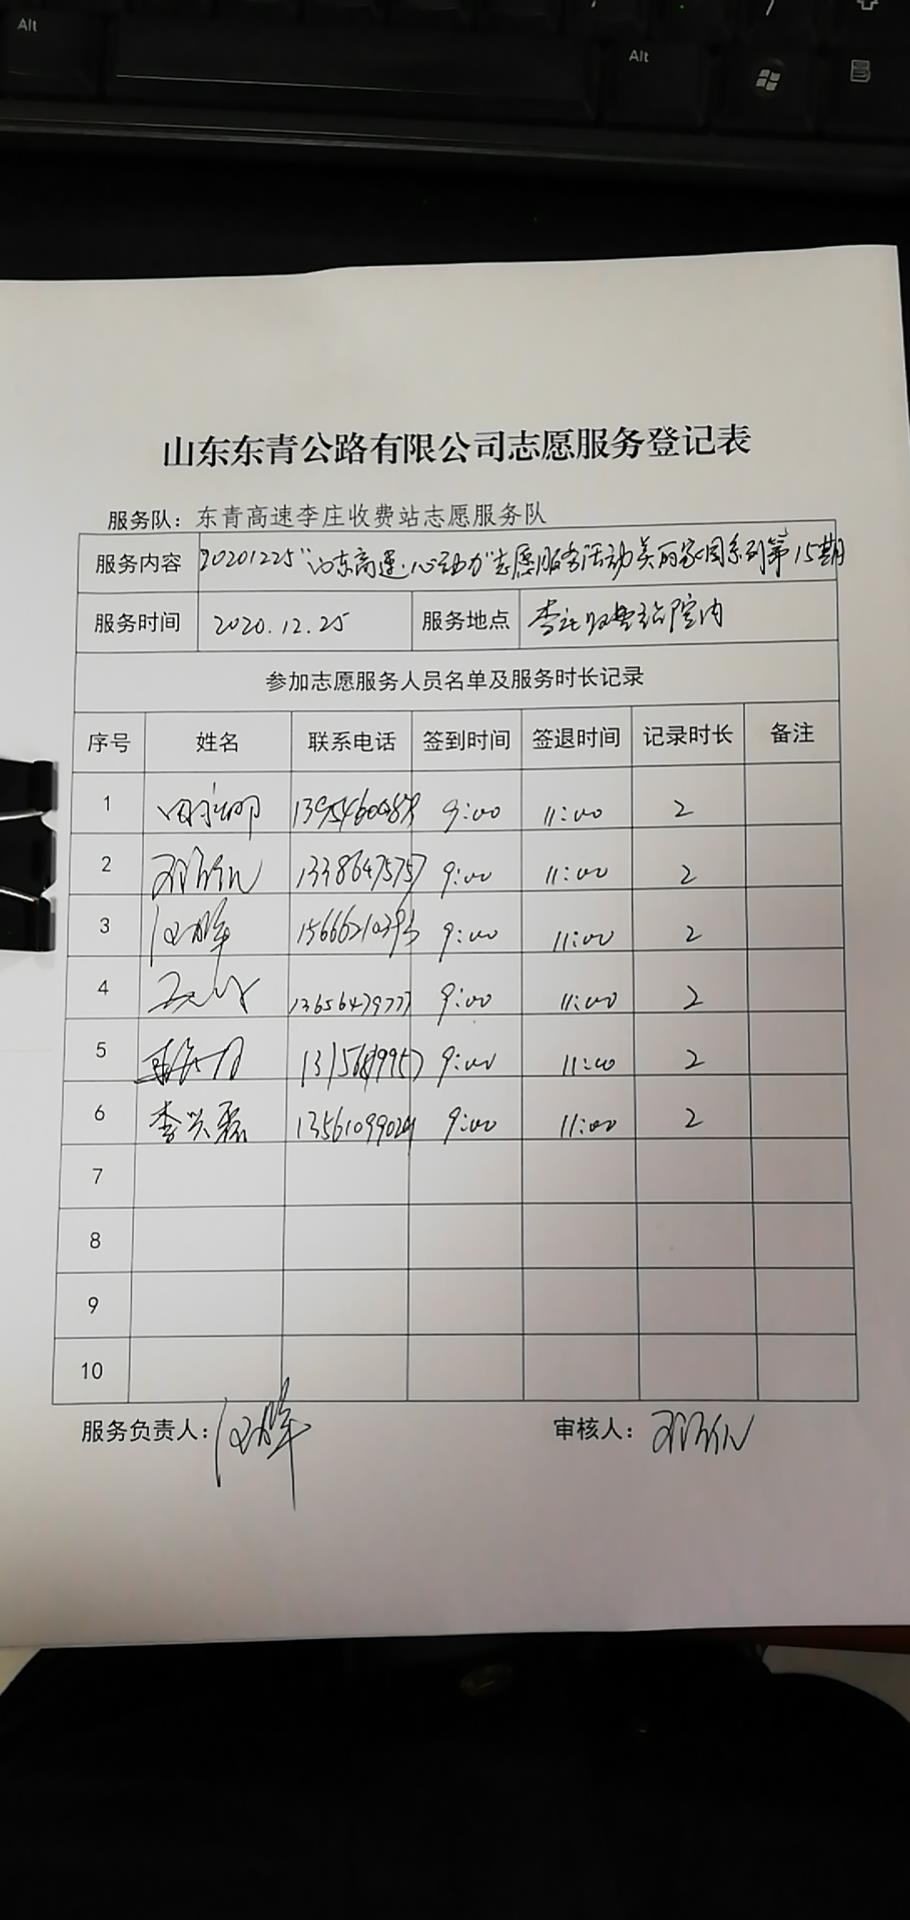 Alt
Alt
山东东青公路有限公司志愿服务登记表
服务队：东青高速李庄收费站志愿服务队
服务内容 20201225"山东高速·心动力"志愿服务活动美丽家园系列第15期
服务时间 2020.12.25 服务地点 李庄收费站院内
参加志愿服务人员名单及服务时长记录
序号 姓名 联系电话 签到时间 签退时间 记录时长 备注
1 9:00 11:00 2
2 13386475757 9:00 11:00 2
3 9:00 11:00 2
4 13656479777 9:00 11:00 2
5 9:00 11:00 2
6 李兴磊 9:00 11:00 2
7
8
9
10
服务负责人： 审核人：